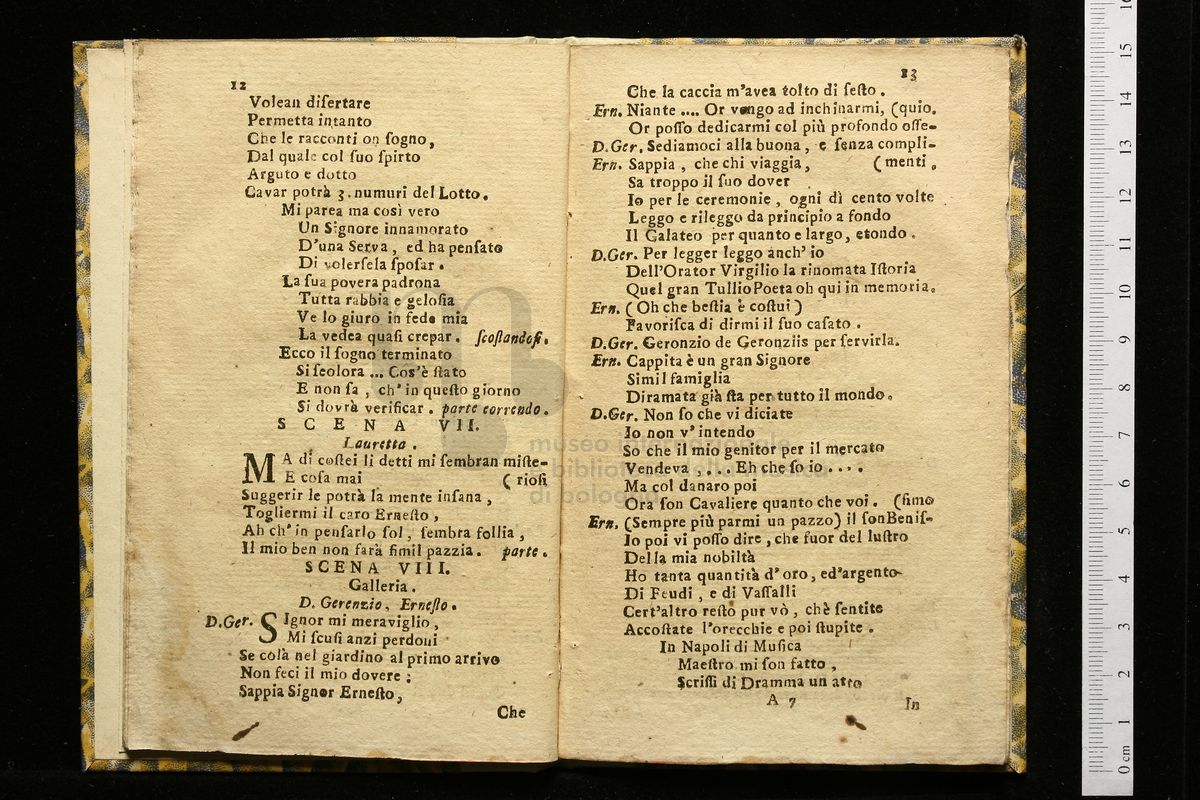 12
Volean diſertare
Permetta intanto
Che le racconti on ſogno,
Dal quale col ſuo ſpirto
Arguto e dotto
Cavar potrà 3. numuri del Lotto.
Mi parea ma così vero
Un Signore innamorato
D'una Serva, ed ha penſato
Di volerſela ſpoſar.
La ſua povera padrona
Tutta rabbia e geloſia
Ve lo giuro in fede mia
La vedea quaſi crepar. ſcoſtandoſi.
Ecco il ſogno terminato
Si ſcolora ... Cos'è ſtato
E non ſa, ch'in queſto giorno
Si dovrà verificar. parte correndo.
SCENA VII.
Lauretta.
MA di coſtei li detti mi ſembran miſte-
E coſa mai (rioſi
Suggerir le potrà la mente inſana,
Togliermi il caro Erneſto,
Ah ch'in penſarlo ſol, ſembra follia,
Il mio ben non farà ſimil pazzia. parte.
SCENA VIII.
Galleria.
D. Gerenzio, Erneſto.
D.Ger. SIgnor mi meraviglio,
Mi ſcuſi anzi perdoni
Se colà nel giardino al primo arrivo
Non feci il mio dovere:
Sappia Signor Erneſto,
Che
13
Che la caccia m'avea tolto di ſeſto.
Ern. Niante .... Or vengo ad inchinarmi, (quio.
Or poſſo dedicarmi col più profondo oſſe-
D.Ger. Sediamoci alla buona, e ſenza compli-
Ern. Sappia, che chi viaggia, (menti.
Sa troppo il ſuo dover
Io per le ceremonie, ogni dì cento volte
Leggo e rileggo da principio a fondo
Il Galateo per quanto e largo, etondo.
D.Ger. Per legger leggo anch' io
Dell'Orator Virgilio la rinomata Iſtoria
Quel gran Tullio Poeta oh qui in memoria.
Ern. (Oh che beſtia è coſtui)
Favoriſca di dirmi il ſuo caſato.
D.Ger. Geronzio de Geronziis per ſervirla.
Ern. Cappita è un gran Signore
Simil famiglia
Diramata già ſta per tutto il mondo.
D.Ger. Non ſo che vi diciate
Io non v'intendo
So che il mio genitor per il mercato
Vendeva .... Eh che ſo io ....
Ma col danaro poi
Ora ſon Cavaliere quanto che voi. (ſimo
Ern. (Sempre più parmi un pazzo) il ſon Beniſ-
Io poi vi poſſo dire, che fuor del luſtro
Della mia nobiltà
Ho tanta quantità d'oro, ed'argento
Di Feudi, e di Vaſſalli
Cert'altro reſto pur vò, chè ſentite
Accoſtate l'orecchie e poi ſtupite.
In Napoli di Muſica
Maeſtro mi ſon fatto,
Scriſſi di Dramma un atto
A 7
In
museo internazionale
biblioteca della musica
di bologna
0 cm 1 2 3 4 5 6 7 8 9 10 11 12 13 14 15 16